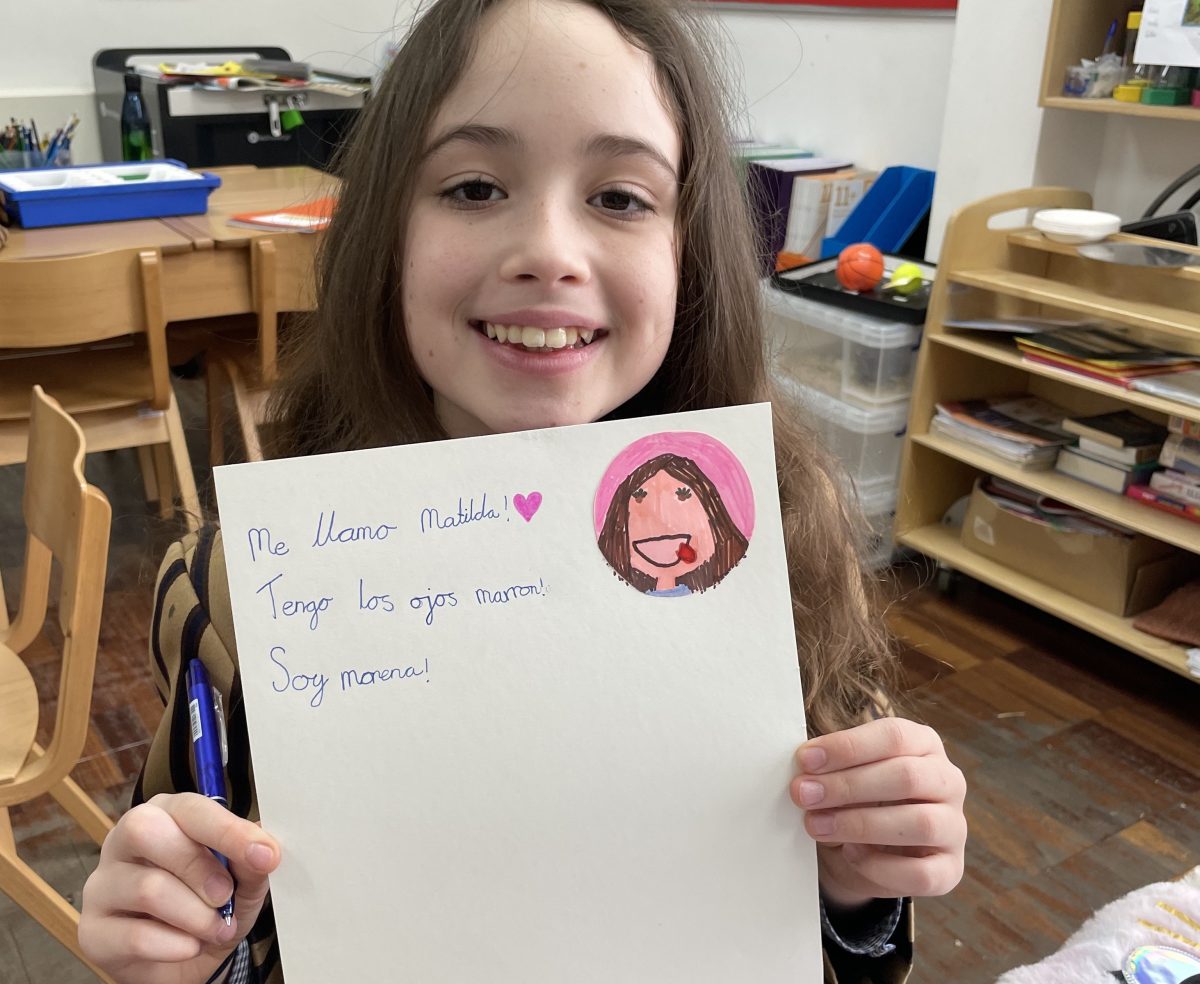 Me llamo Matilda!
Tengo los ojos marron!
Soy morena!